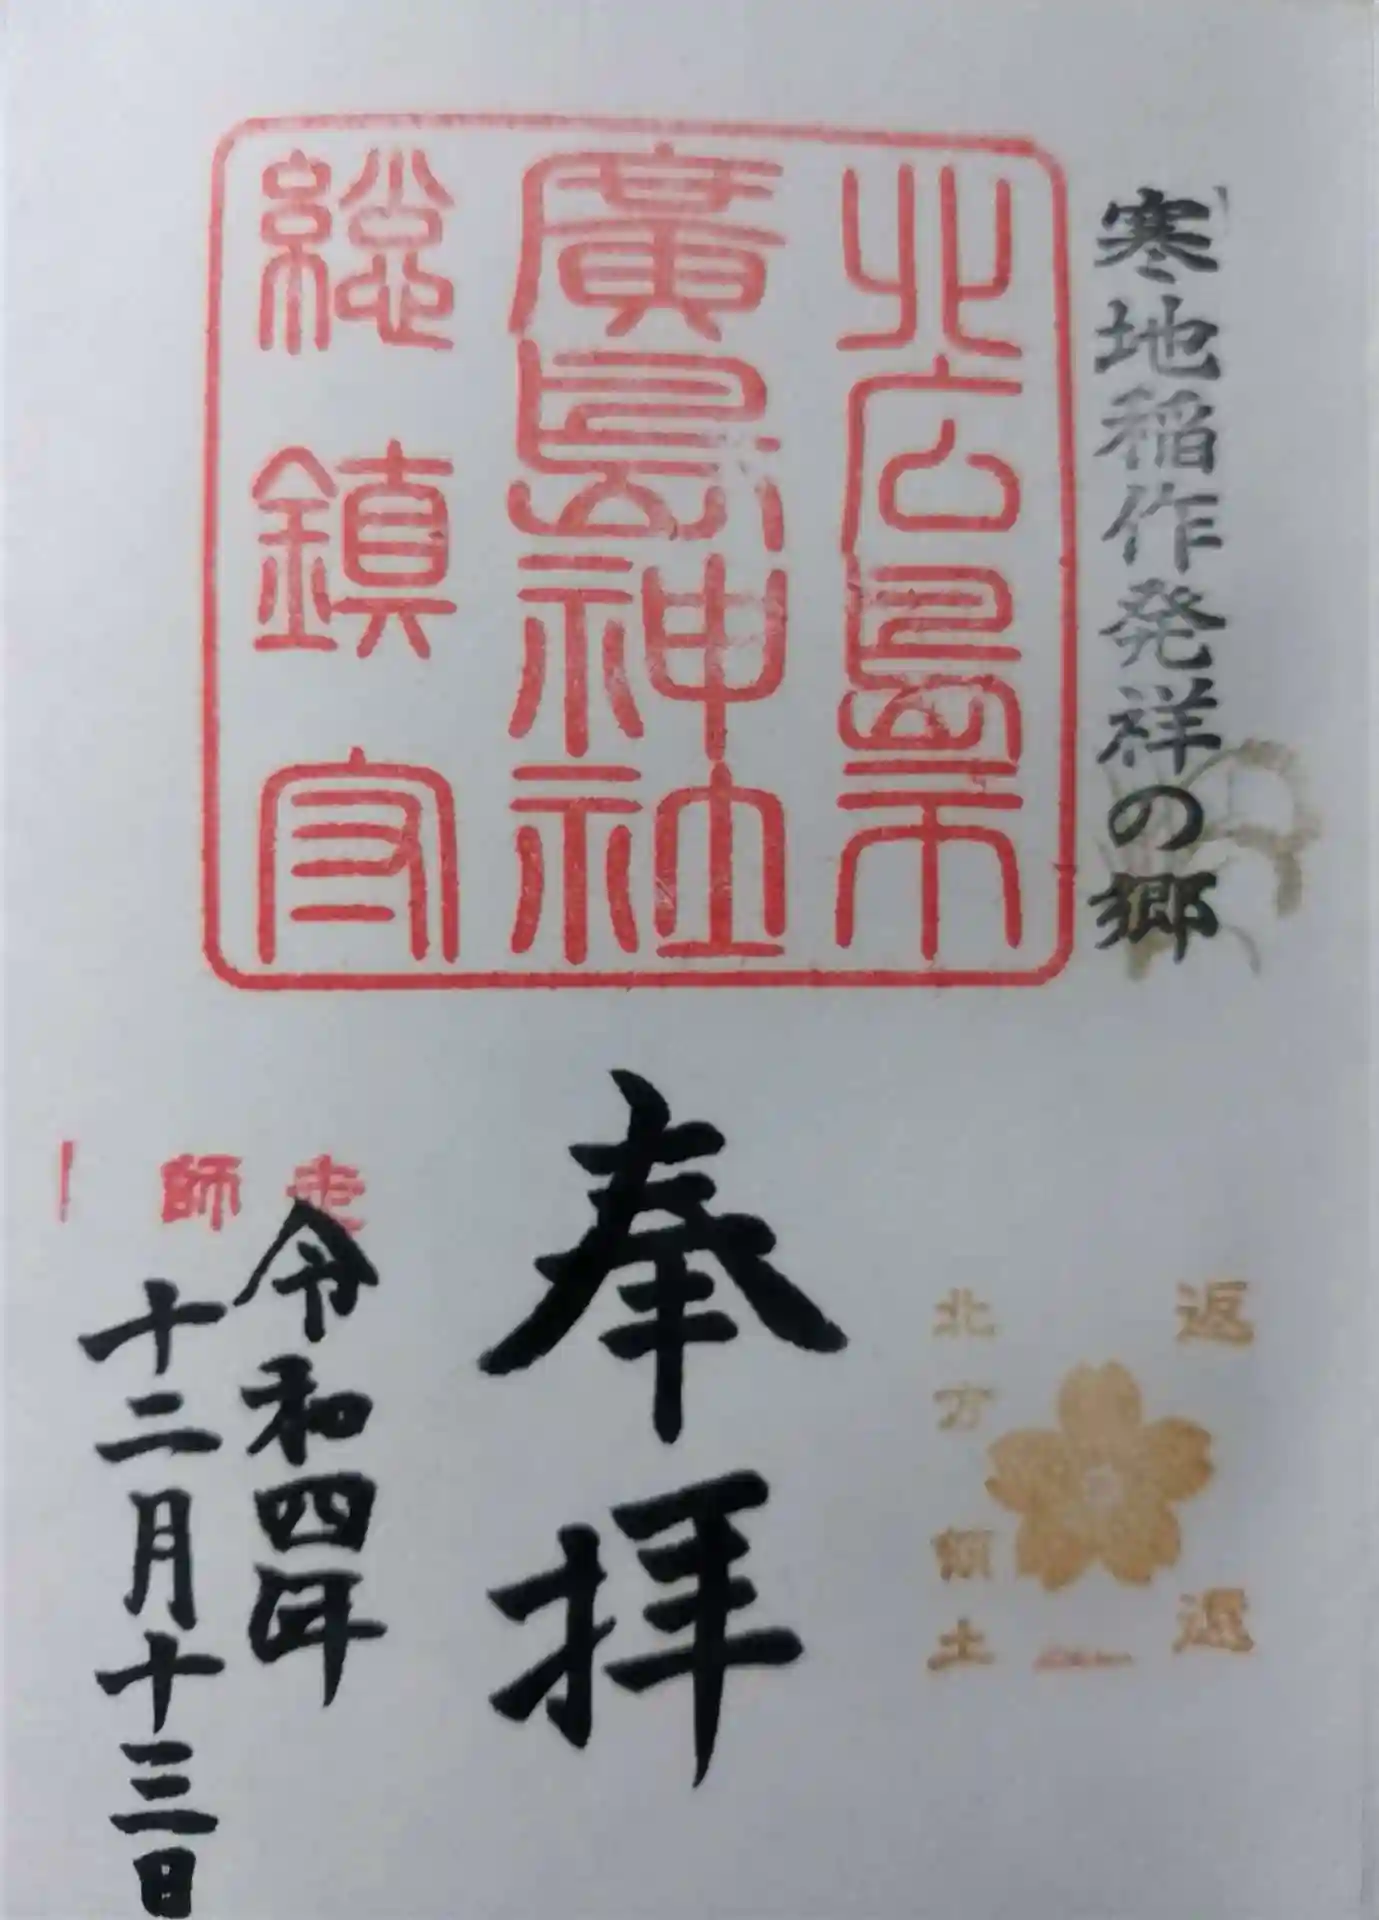 寒地稲作発祥の郷
北広島市
廣島神社
総鎮守
返還
北方領土
奉拝
走師
令和四年
十二月十三日